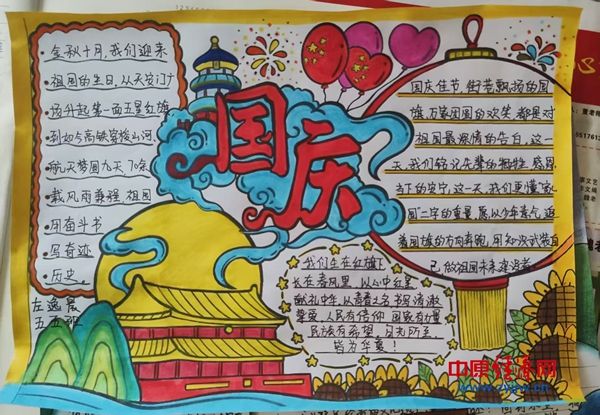 金秋十月,我们迎来
祖国的生日,从天安门广
场升起第一面五星红旗
到如今高铁穿梭山河
航天梦圆九天 70余
载风雨兼程 祖国
用奋斗书
写奇迹
历史
左逸晨
五五班
国庆
国庆佳节,街巷飘扬的国
旗,万家团圆的欢笑,都是对
祖国最深情的告白,这一
天,我们铭记先辈的牺牲,感恩
当下的安宁,这一天,我们更懂"家
国"二字的重量,愿以少年志气,追
着国旗的方向奔跑,用知识武装自
己,做祖国未来建设者。
我们生在红旗下
长在春风里,以心中红星
献礼中华,以青春之名书写清澈
挚爱,人民有信仰,国家有力量
民族有希望,目光所至,
皆为华夏!
中原经济网